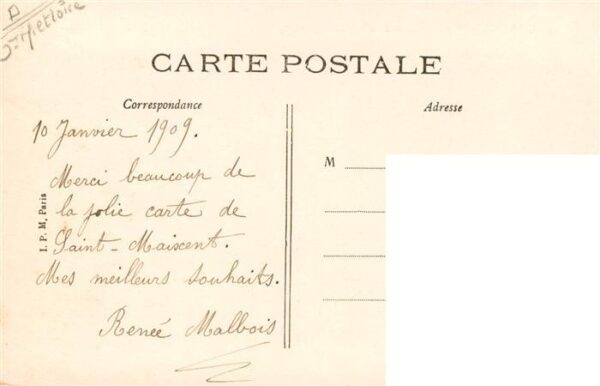 CARTE POSTALE
Correspondance
Adresse
10 Janvier 1909.
Merci beaucoup de
la jolie carte de
Saint-Maixent.
Mes meilleurs souhaits.
Renée Malbois
M
I. P. M, Paris